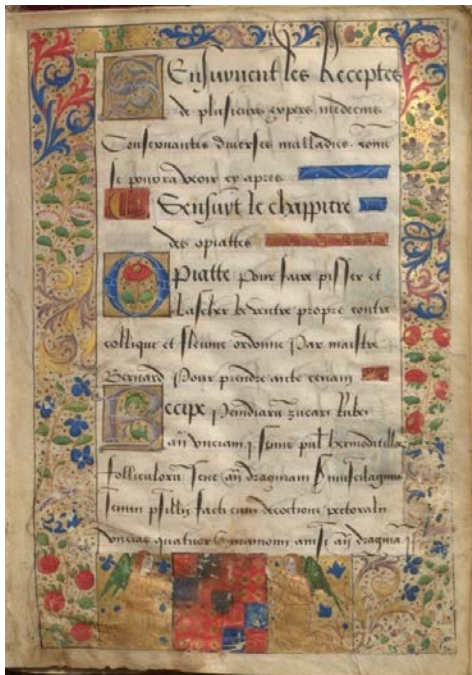 Ensuyuent les Receptes
de plusieurs expers medecins
Concernantes diuerses malladies come
se pourra veoir cy apres
Sensuyt le chappitre
des opiattes
Opiatte pour faire pisser et
lascher le ventre propre contre
collique et fleume ordonne par maistre
Bernard pour prendre
Recipe penidiarum zucari
an unciam j. senne hermodatillo
folliculoru sene an dragmam
semin psillii facti cum decoctione pectorali
uncias quatuor an dragma j